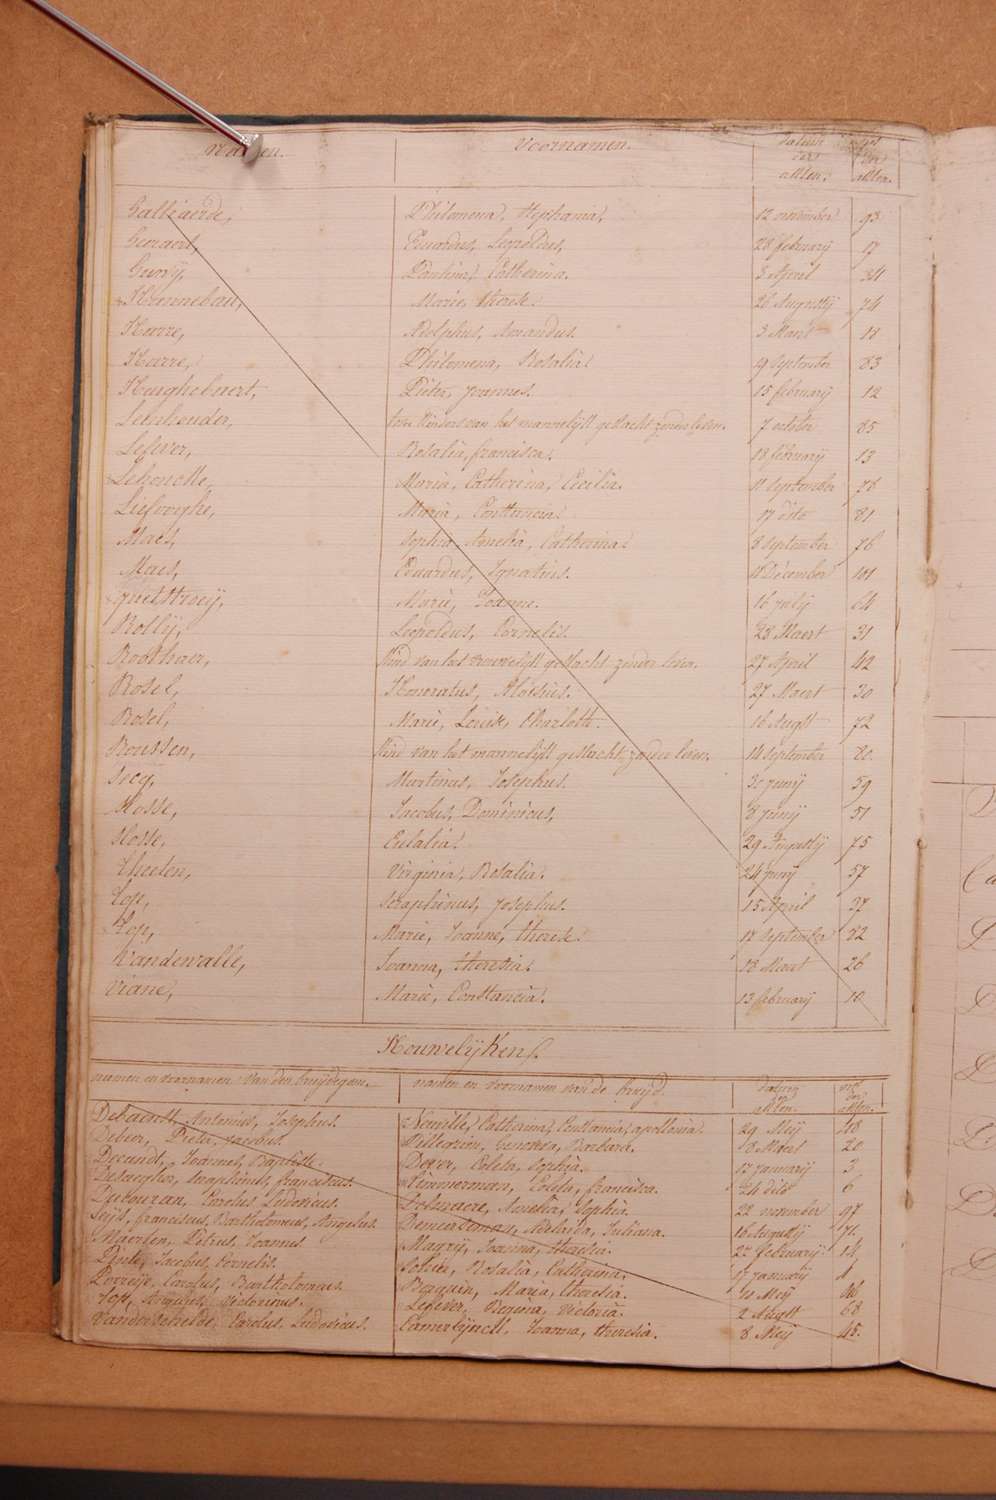 Namen. Voornamen. datum der akten. der akten.
Galliaerde, Philomena, Stephania. 12 november 93
Geraert, Eduardus, Leopoldus, 28 february 17
Paulina, Catherina. 3 April 34
Hennebau, Marie, therese. 26 Augusty 74
Herre, Adolphus, Amandus. 3 Maert 18
Herre, Philomena, Rosalia. 19 september 83
Huighebaert, Pieter, joannes. 15 february 12
van het mannelijk geslacht zonder leven. 7 october 85
Lefever, Rosalia, francisca. 18 february 13
Lehoucke, Maria, Catherina, Cecilia. 11 september 78
Liefooghe, Maria, Constancia. 17 dito 81
Maes, Sophia, Amelia, Catherina. 8 september 76
Maes, Eduardus, Ignatius. 11 Décember 101
Quetstroey, Marie, Joanne. 16 july 64
Rolly, Leopoldus, Cornelis. 28 Maert 31
Roothaer, Kind van het vrouwelijk geslacht zonder leven. 27 April 42
Rosel, Honoratus, Aloisius. 27 Maert 30
Rosel, Marie, Louise, Charlotte. 16 Augst 72
Roussen, Kind van het mannelijk geslacht, zonder leven. 14 september 80
Secq, Martinus, Josephus. 30 junij 59
Slosse, Jacobus, Dominicus, 8 junij 51
Slosse, Eulalia. 29 Augustij 75
Theeten, Virginia, Rosalia. 24 junij 57
Top, Seraphinus, josephus. 15 April 37
Top, Marie, Joanne, therese. 17 september 82
Vandewalle, Joanna, theresia. 18 Maert 26
Viane, Marie, Constancia. 13 february 10
Houwelijken.
namen en voornamen van den bruijdegom. namen en voornamen van de bruijd. datum der akten. der akten.
Debaerdt, Antonius, Josephus. Catharina, Constantia, apollonia. 29 Meij
Dever, Pieter, jacobus. Pellegrim, Genoveva, Barbara. 18 Maert 20
Decundt, Joannes, Baptiste. Dever, Coleta, Sophia. 17 january 3
seraphinus, franciscus. Timmerman, Coleta, francisca. 24 dito 6
Dubouran, Carolus, Ludovicus. Amelia, Sophia. 22 november 97
Seijs, franciscus, Bartholomeus, Angelus. Adelaida, Juliana. 16 Augustij 71
Maerten, Petrus, Joannes. Magrij, Joanna, theresia. 22 february 14
Pinte, Jacobus, Cornelis. Rosalia, Catharina. 17 january
Carolus, Bartholomeus. Beguin, Maria, theresia. Meij
Top, Victorinus. Lefever, Regina, Victoria. 2 68
Vanderschelde, Carolus, Ludovicus. Camerlynck, Joanna, theresia. 8 Meij 45.